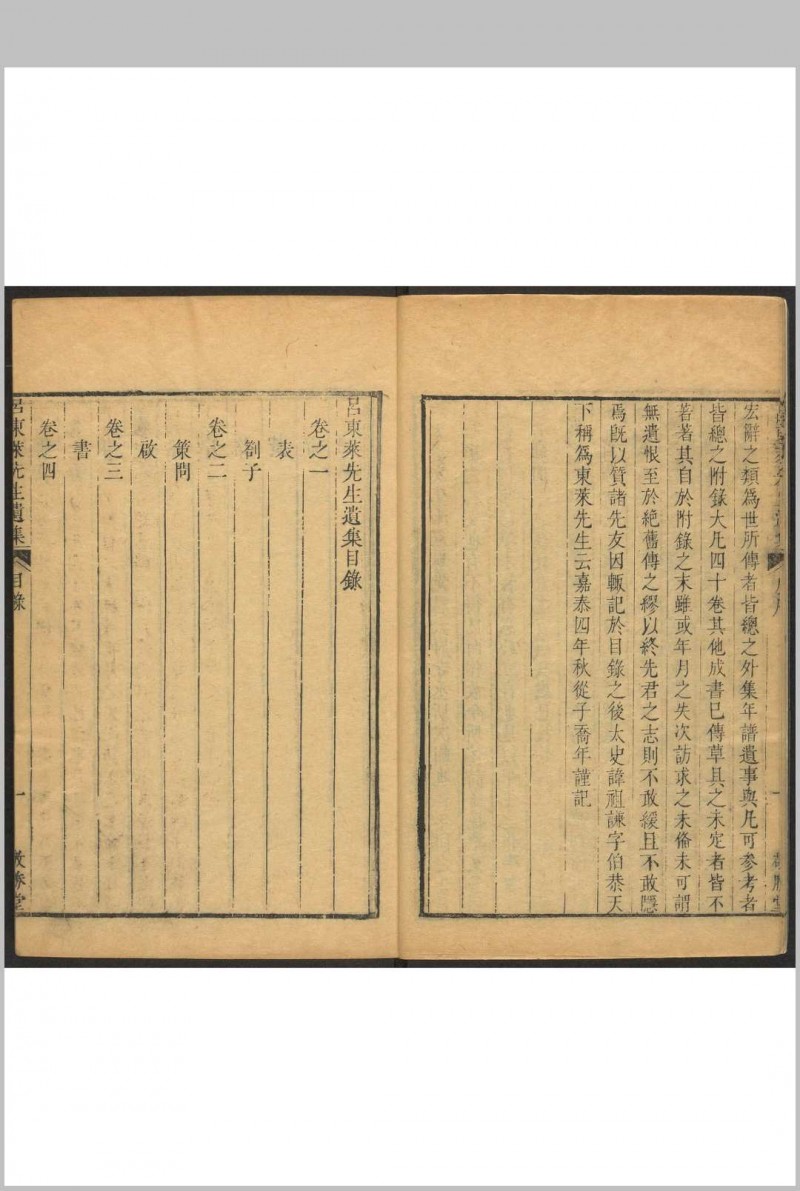 宏辭之類爲世所傳者皆總之外集年譜遺事與凡可參考者
皆總之附錄大凡四十卷其他成書已傳草具之未定者皆不
著著其自於附錄之末雖或年月之失次訪求之未俻未可謂
無遺恨至於絶舊傳之繆以終先君之志則不敢緩且不敢隱
焉既以質諸先友因輙記於目錄之後太史諱祖謙字伯恭天
下稱爲東萊先生云嘉泰四年秋從子喬年謹記
呂東萊先生遺集目錄
卷之一
表
劄子
卷之二
策問
啟
卷之三
書
卷之四
呂東萊先生遺集
目錄
一
敬勝堂